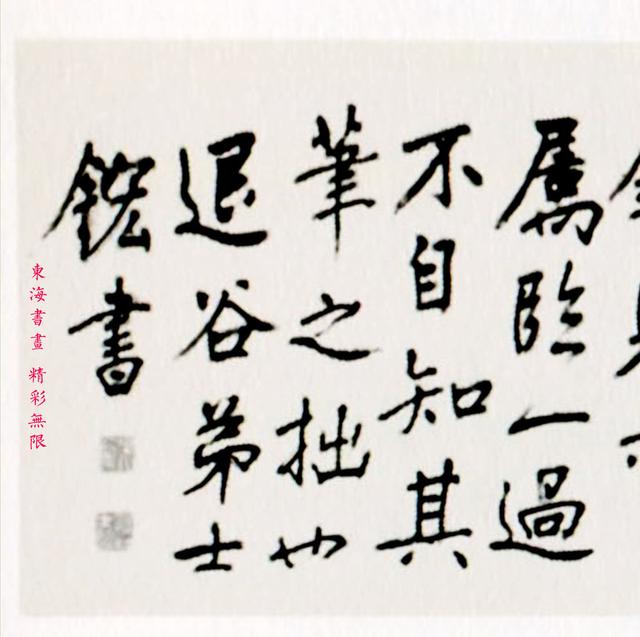 屬臨一過
不自知其
筆之拙也
退谷弟士
鋐書
東海書畫 精彩無限